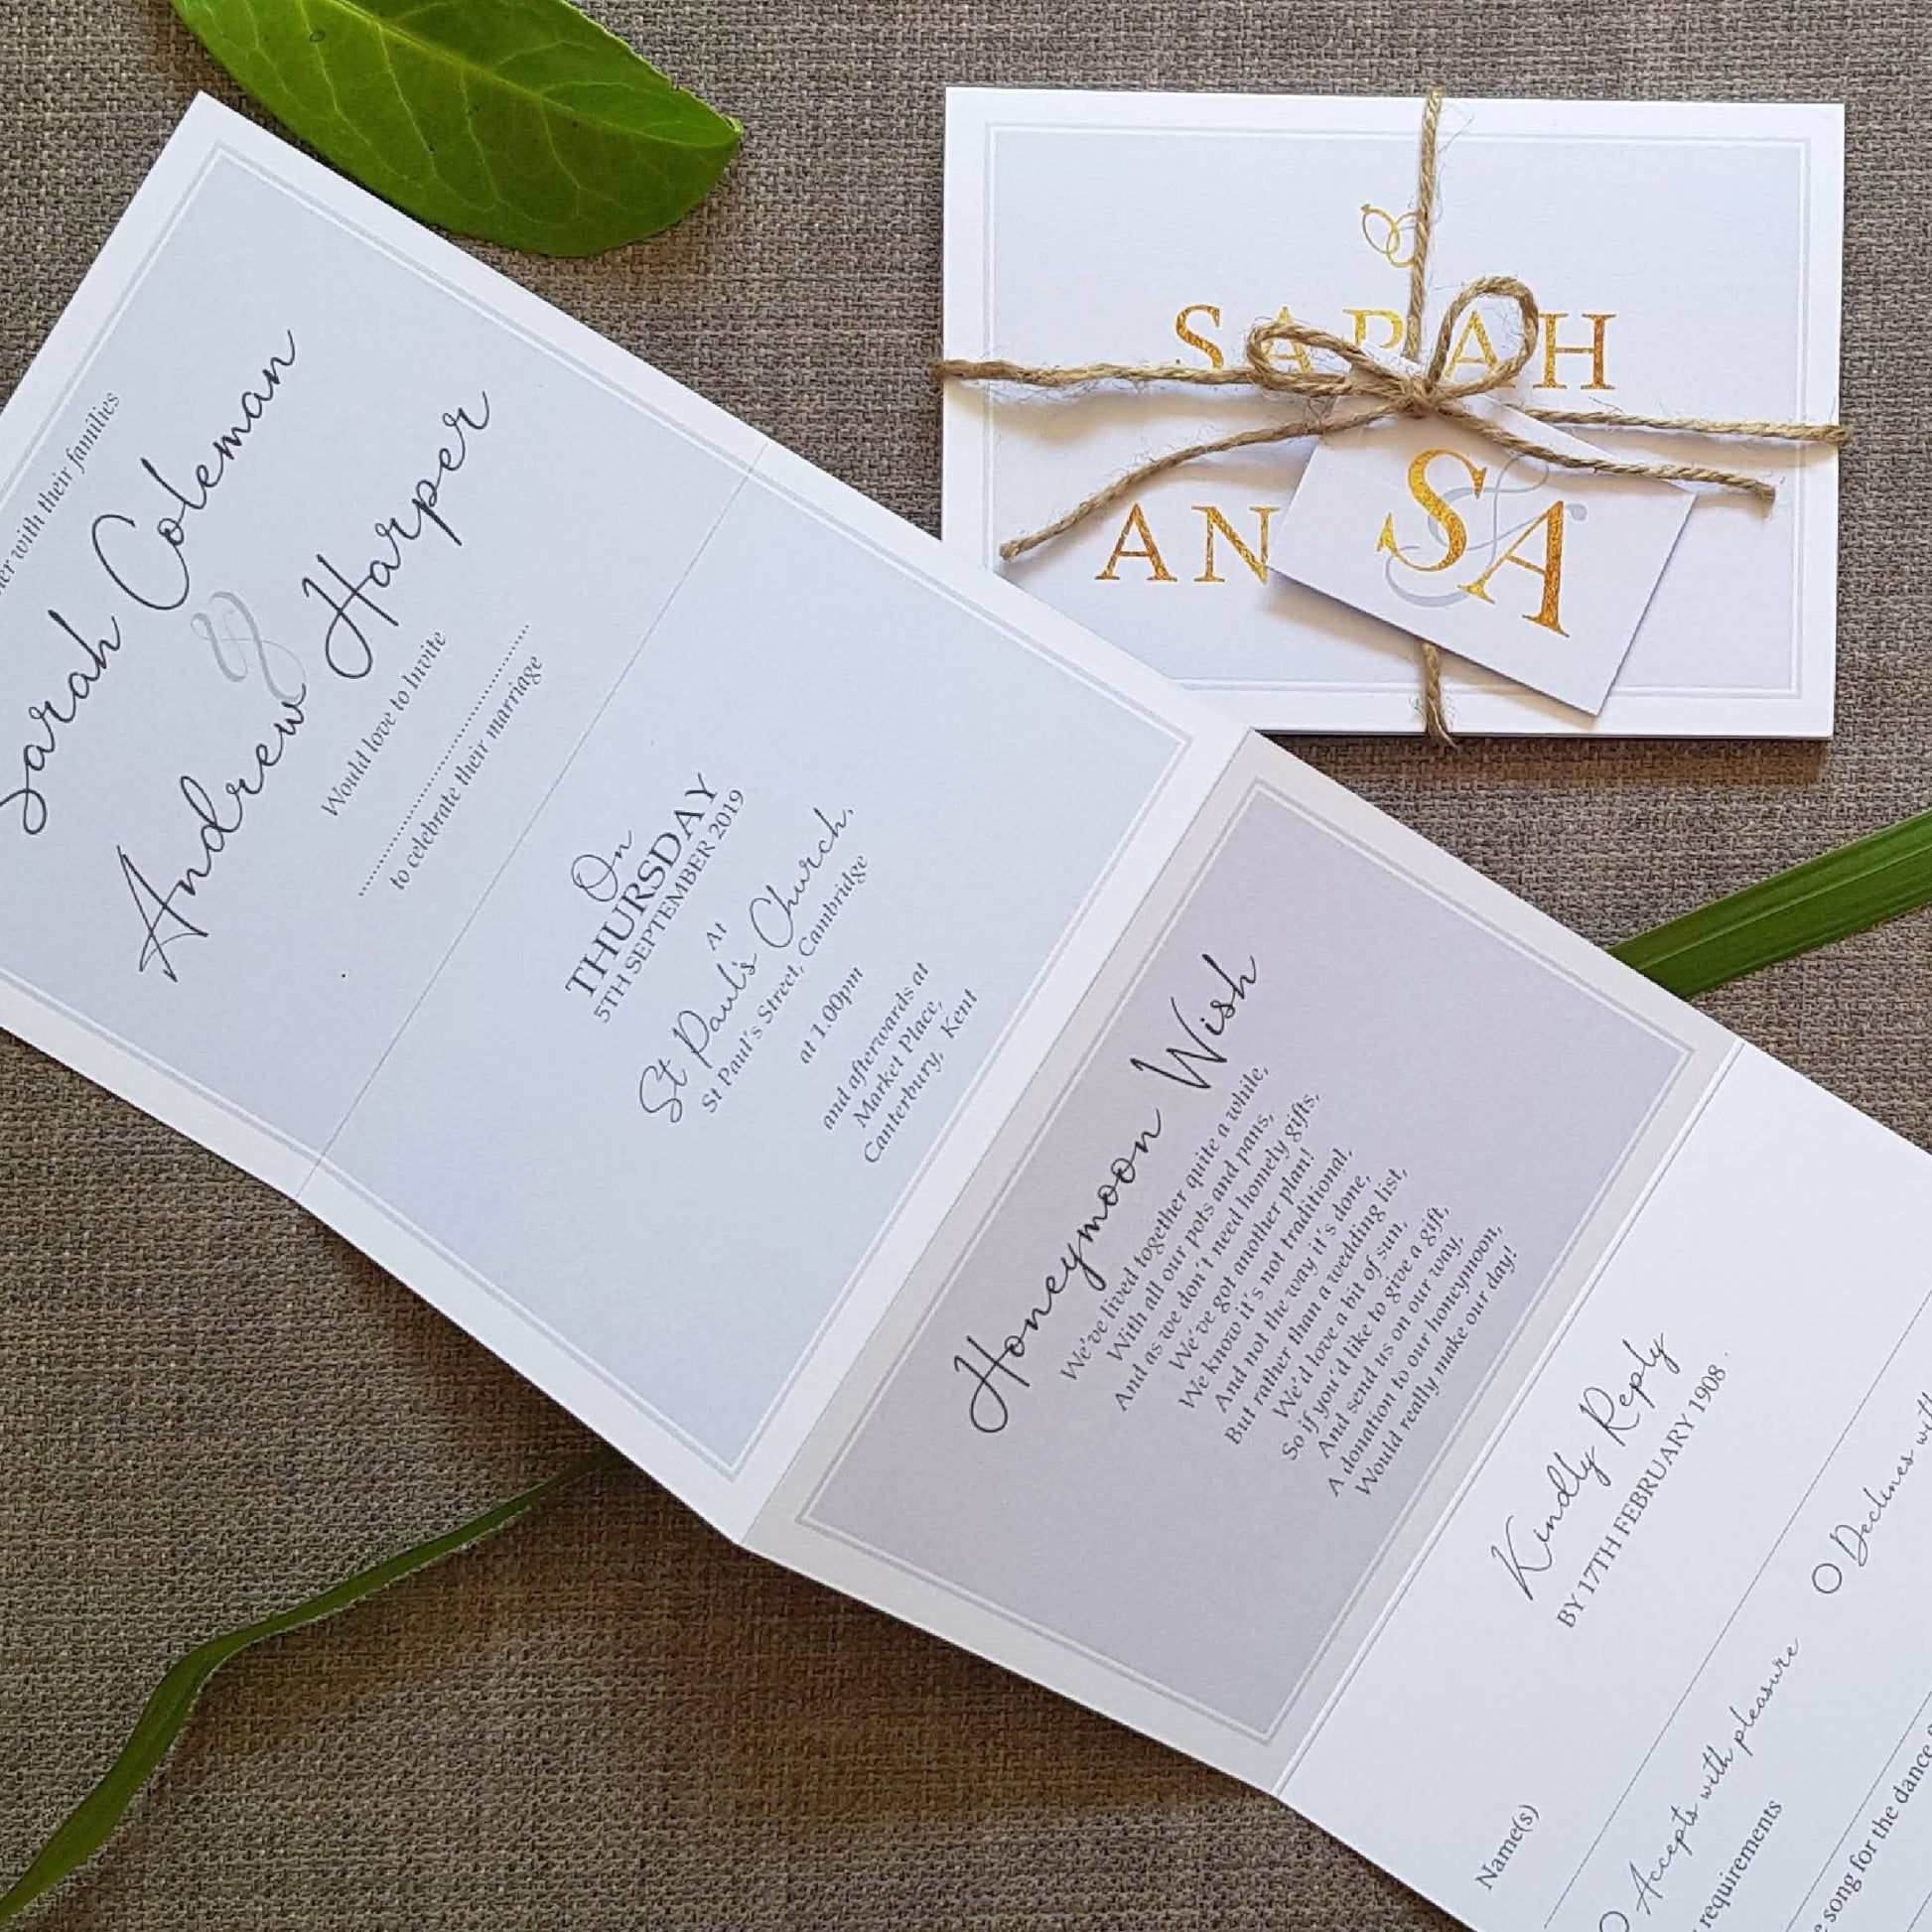 with their families
Sarah Coleman
&
Andrew Harper
Would love to Invite
to celebrate their marriage
On
THURSDAY
5TH SEPTEMBER 2019
At
St Paul's Church,
St Paul's Street, Cambridge
at 1.00pm
and afterwards at
Market Place,
Canterbury, Kent
Honeymoon Wish
We've lived together quite a while,
With all our pots and pans,
And as we don't need homely gifts,
We've got another plan!
We know it's not traditional,
And not the way it's done,
But rather than a wedding list,
We'd love a bit of sun,
So if you'd like to give a gift,
And send us on our way,
A donation to our honeymoon,
Would really make our day!
Kindly Reply
BY 17TH FEBRUARY 1908.
Name(s)
Accepts with pleasure
Declines with
requirements
song for the dance
SARAH
AN
S&A